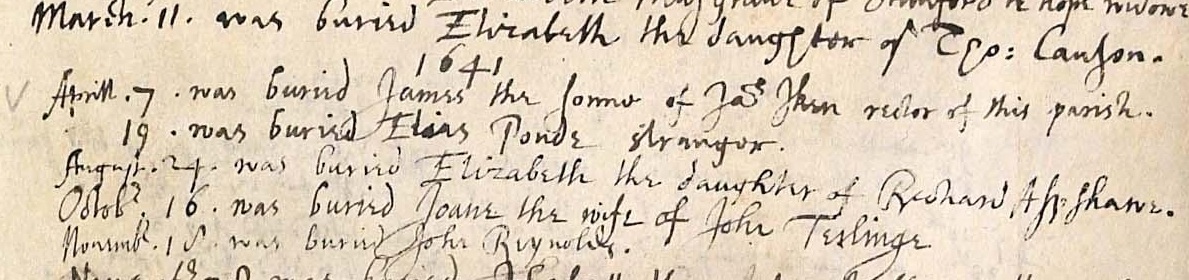 of
March. 11. was buried Elizabeth the daughter of Tho: Causon.
1641
Aprill. 7. was buried James the sonne of Jas rector of this parish.
19. was buried Elias Ponde stranger.
August. 24. was buried Elizabeth the daughter of Richard
Octobr. 16. was buried Joane the wife of John Teslinge
Novembr. 18. was buried John Reynolds.
was buried